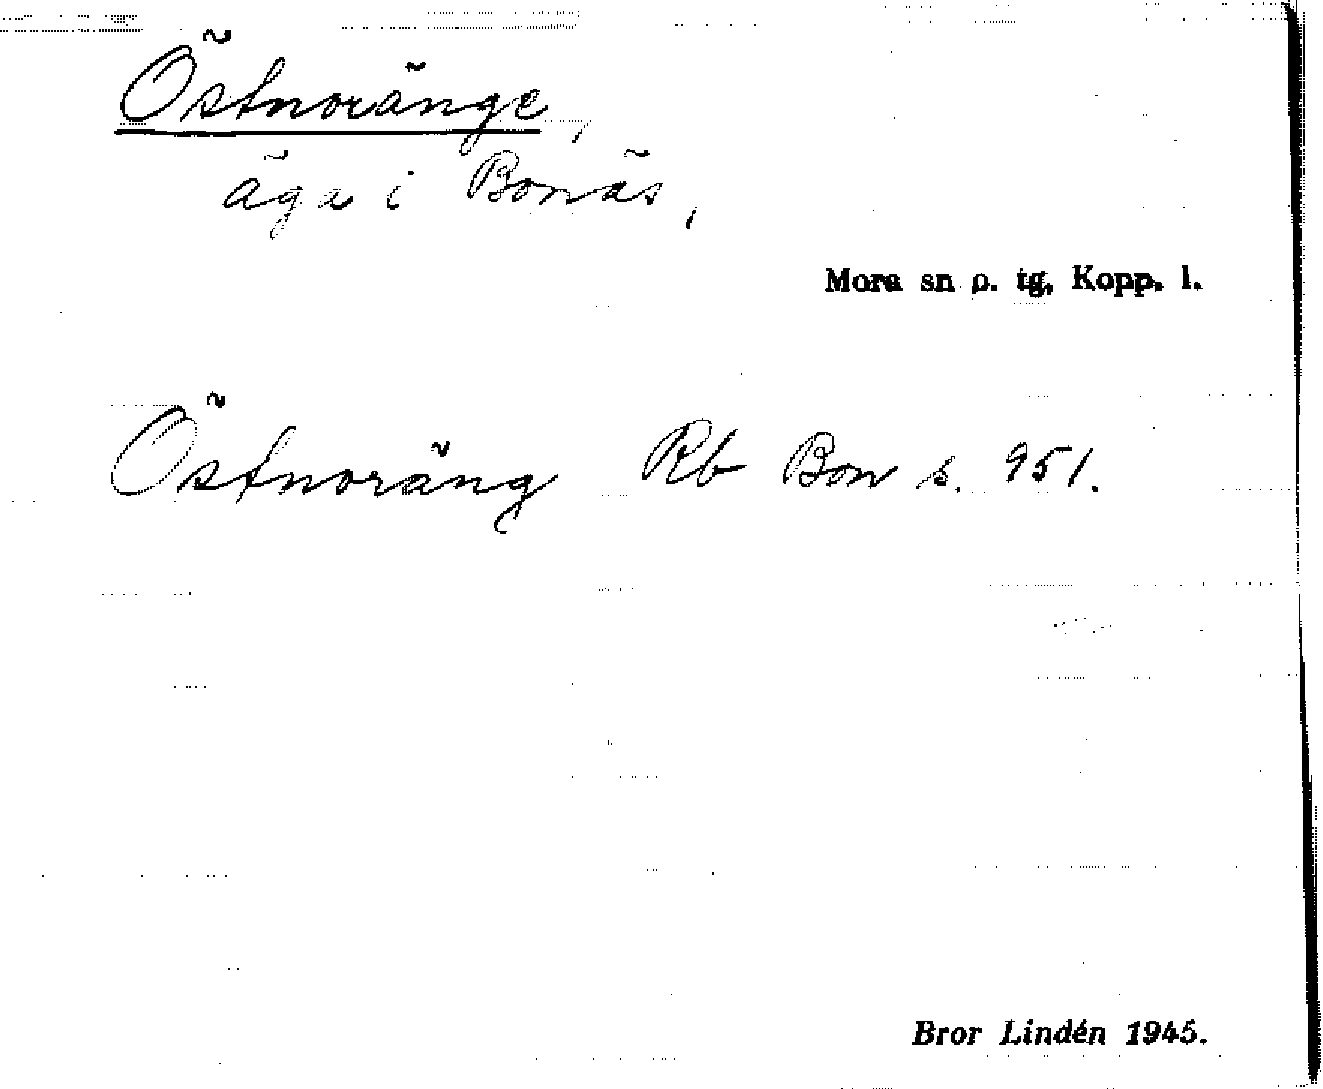 Östnoränge,
äga i Bonäs,
Mora sn o. tg, Kopp. l.
Östnoräng Rb Bon s. 951.
Bror Lindén 1945.